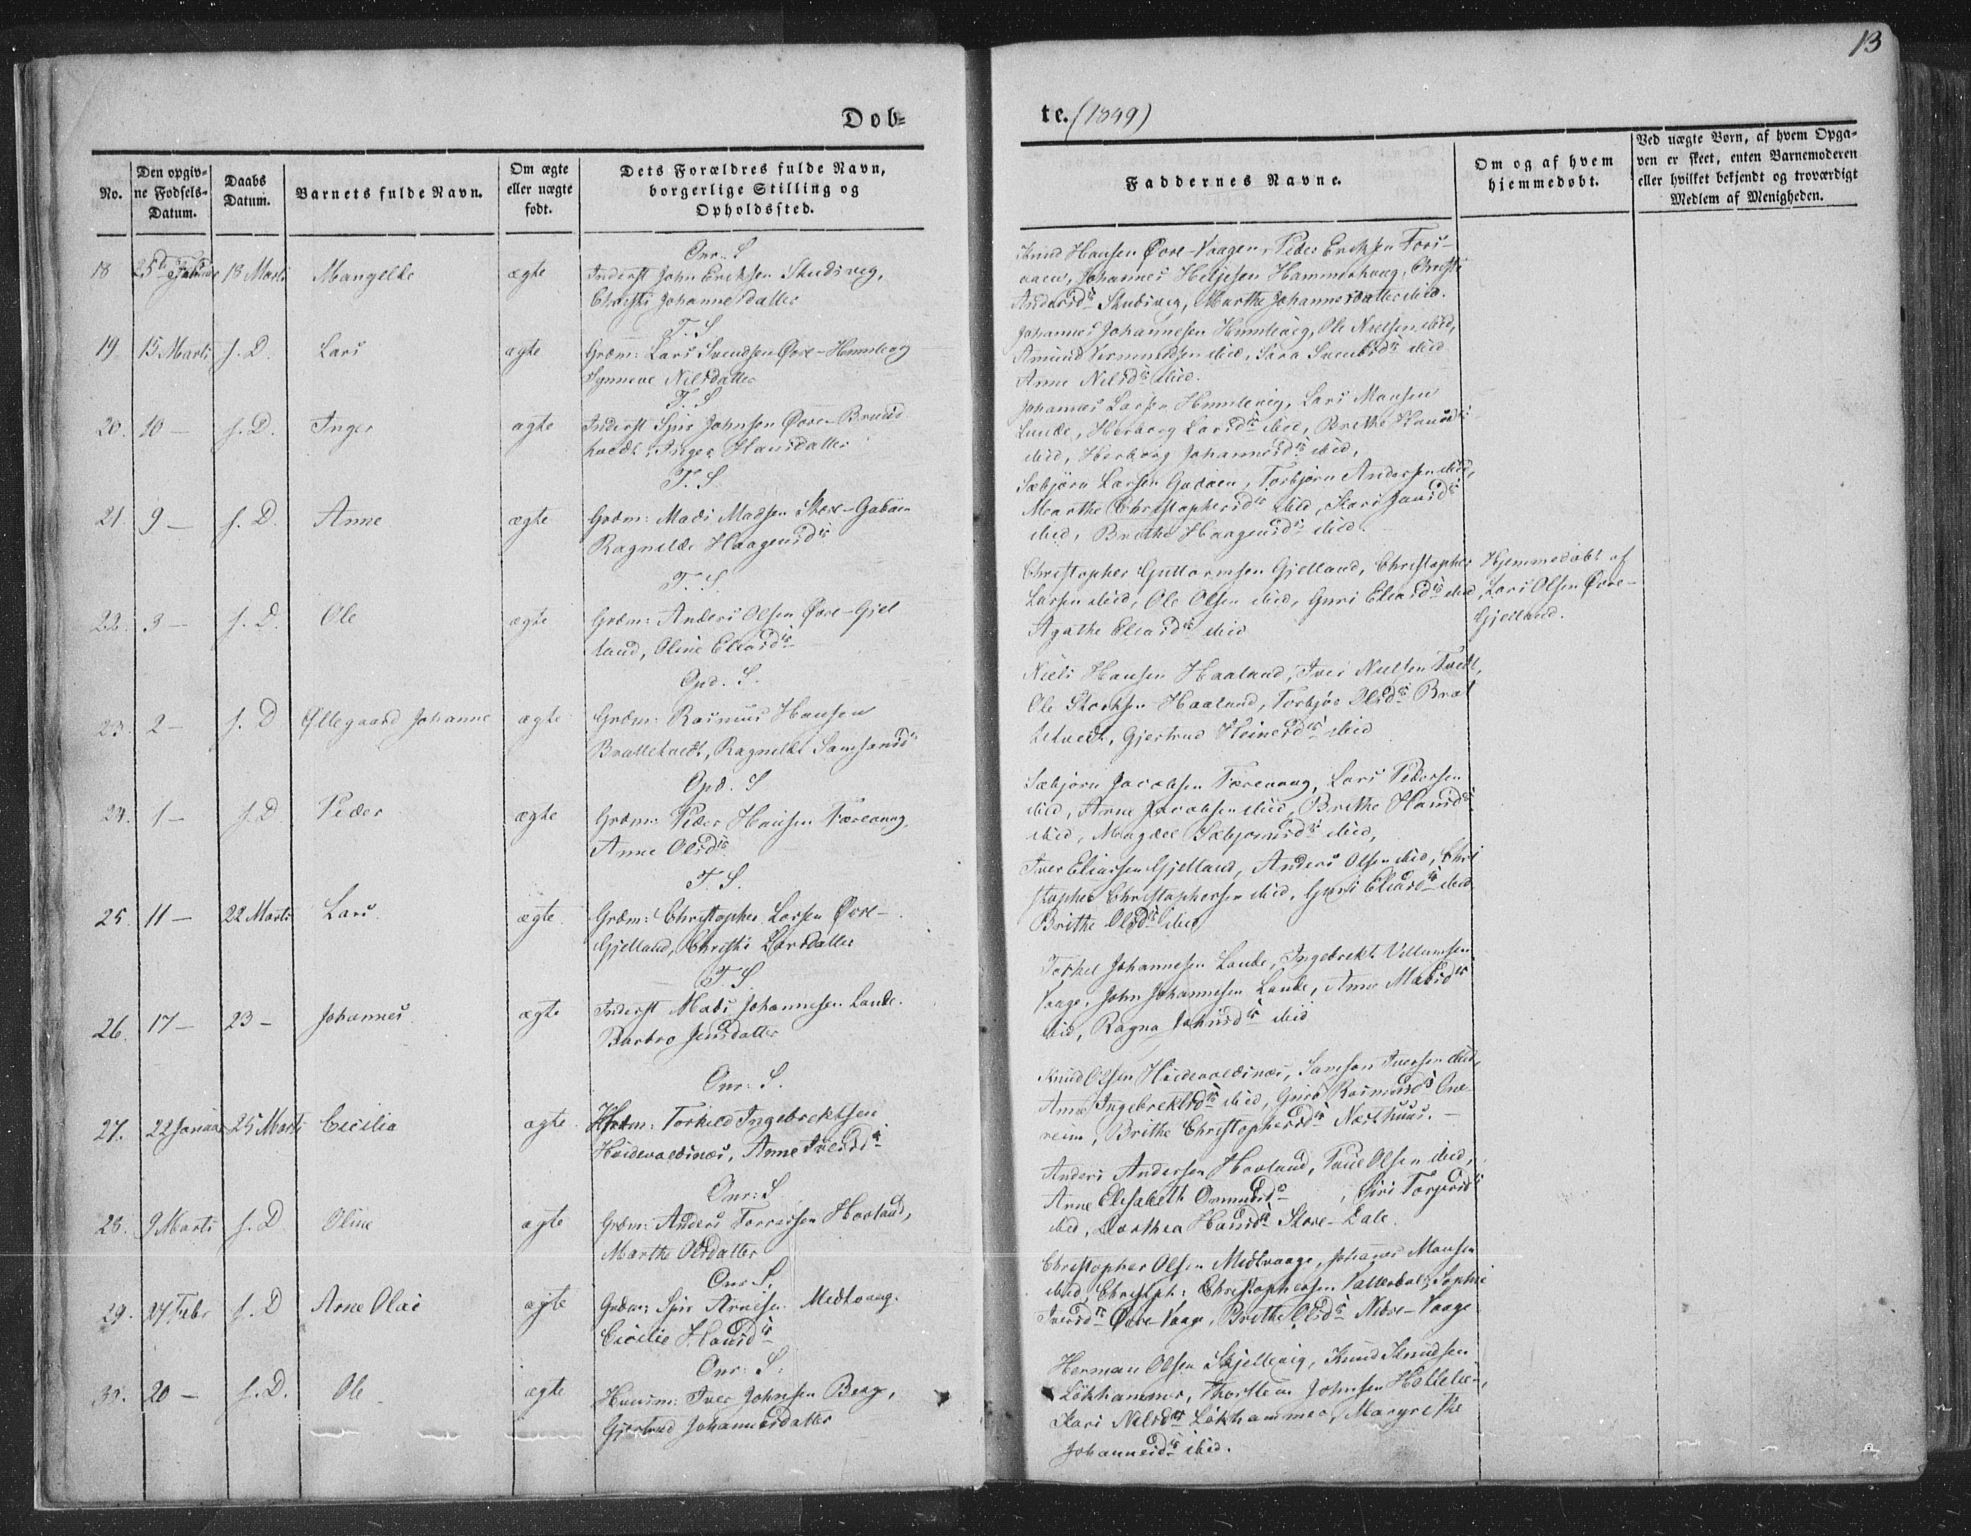 13
Dob=
te. (1849)
No.
Den opgiv=
ne Fødsels=
Datum.
Daabs
Datum.
Barnets fulde Navn.
Om ægte
eller uægte
født.
Dets Forældres fulde Navn,
borgerlige Stilling og
Opholdssted.
Faddernes Navne.
Om og af hvem
hjemmedøbt.
Ved uægte Børn, af hvem Opga=
ven er skeet, enten Barnemoderen
eller hvilket bekjendt og troværdigt
Medlem af Menigheden.
Onr. S
18 25de 18 Marts Mangelke ægte Inderst John Eriksen Skudsvig,
Christi Johannesdatter
Knud Hansen Øvre-Vaagen, Peder Eriksen Fors-
Johannes Heljesen Hammerhoug, Christi
Andersdtr Skudsvig, Marthe Johannesdatter ibid.
T. S
19 15 Marts s. D. Lars ægte Grdm: Lars Svendsen Øvre-Humlevig
Synneve Nilsdatter
Johannes Johannesen Humlevig, Ole Nielsen ibid,
Amund ibid, Sara Svendsdtr ibid
Anne Nilsdtr ibid.
T. S
20. 10 — s. D. Inger ægte Inderst Spir Johnsen Øvre-
Inger Hansdatter
Johannes Larsen Humlevig, Lars Monsen
Lunde, Herborg Larsdtr ibid, Brithe
ibid, Herborg Johannesdtr ibid,
T. S.
21. 9 — s. D. Anne ægte Grdm: Mads Madsen Store-Gadäen
Ragnilde Haagensdtr
Sæbjörn Larsen Gadäen, Torbjörn Andersen ibid,
Marthe Christophersdtr ibid, Kari Jansdtr
ibid, Brithe Haagensdtr ibid.
T. S.
22. 3 — s. D. Ole ægte Grdm: Anders Olsen Øvre-Gjel
land, Oline Eliasdtr
Christopher Guttormsen Gjelland, Christopher
Larsen ibid, Ole Olsen ibid, Guri Eliasdtr ibid,
Agathe Eliasdtr ibid
Hjemmedøbt af
Lars Olsen Øvre-
Gjelland.
Opd. S.
23. 2 — s. D Øllegaard Johanne ægte Grdm: Rasmus Hansen
Brattetvedt, Ragnilde Samsonsdtr
Niels Hansen Haaland, Iver Nielsen Tvedt,
Ole Haaland, Torbjør Olsdtr Brat
tetvedt, Gjertrud Heinesdtr ibid
Opd. S
24. 1 — s. D Peder ægte Grdm: Peder Hansen Færevaag,
Anne Olsdtr
Sæbjørn Jacobsen Færevaag, Lars Pedersen
ibid, Arne Jacobsen ibid, Brithe Hansdtr
ibid, Magdel Sæbjørnsdtr ibid,
T. S.
25. 11 — 22 Marts Lars ægte Grdm: Christopher Larsen Øvre-
Gjelland, Christi Larsdatter
Iver Eliassen Gjelland, Anders Olsen ibid, Chri
stopher Christophersen ibid, Guri Eliasdtr ibid
Brithe Olsdtr ibid
T. S.
26. 17 — 23 — Johannes ægte Inderst Mads Johannesen Lande.
Barbro Jensdatter
Torkel Johannesen Lande, Ingebrekt Villumsen
Vaage, John Johannesen Lande, Anne Madsdtr
ibid, Ragna Johnsdtr ibid
Onr: S.
27. 22 Januar 25 Marts Cecilia ægte Torkild Ingebrektsen
Hvidevoldsnæs, Anne
Knud Olsen Hvidevoldsnæs, Samson Iversen ibid,
Anne Ingebrektsdtr ibid, Guro Rasmusdtr One-
reim, Brithe Christophersdtr Næsthuus. —
Onr: S
28. 9 Marts s. D. Oline ægte Grdm: Anders Torresen Hovland,
Marthe Olsdatter
Anders Andersen Hovland, Poul Olsen ibid,
Anne Elisabeth Ormundsdtr, Siri Torgersdtr
ibid, Dorthea Hansdtr Store-Dale.
Onr. S.
29. 27 Febr s. D Arne Olai ægte Grdm: Spir Arnesen Medtvaag.
Cicilie Hansdtr
Christopher Olsen Medtvaage, Johannes Monsen
ibid, Christph: Christophersen Vatterdal, Sophie
Iversdtr Øvre-Vaage, Brithe Olsdtr Nedre-Vaage
Onr: S.
30. 20 — s. D. Ole ægte Huusm: Iver Johnsen Berg,
Gjertrud Johannesdatter
Herman Olsen Skjellevig, Knud Knudsen
Løkhammer, Thorsten Johnsen
Kari Nilsdtr Løkhammer, Margrethe
Johannesdtr ibid.